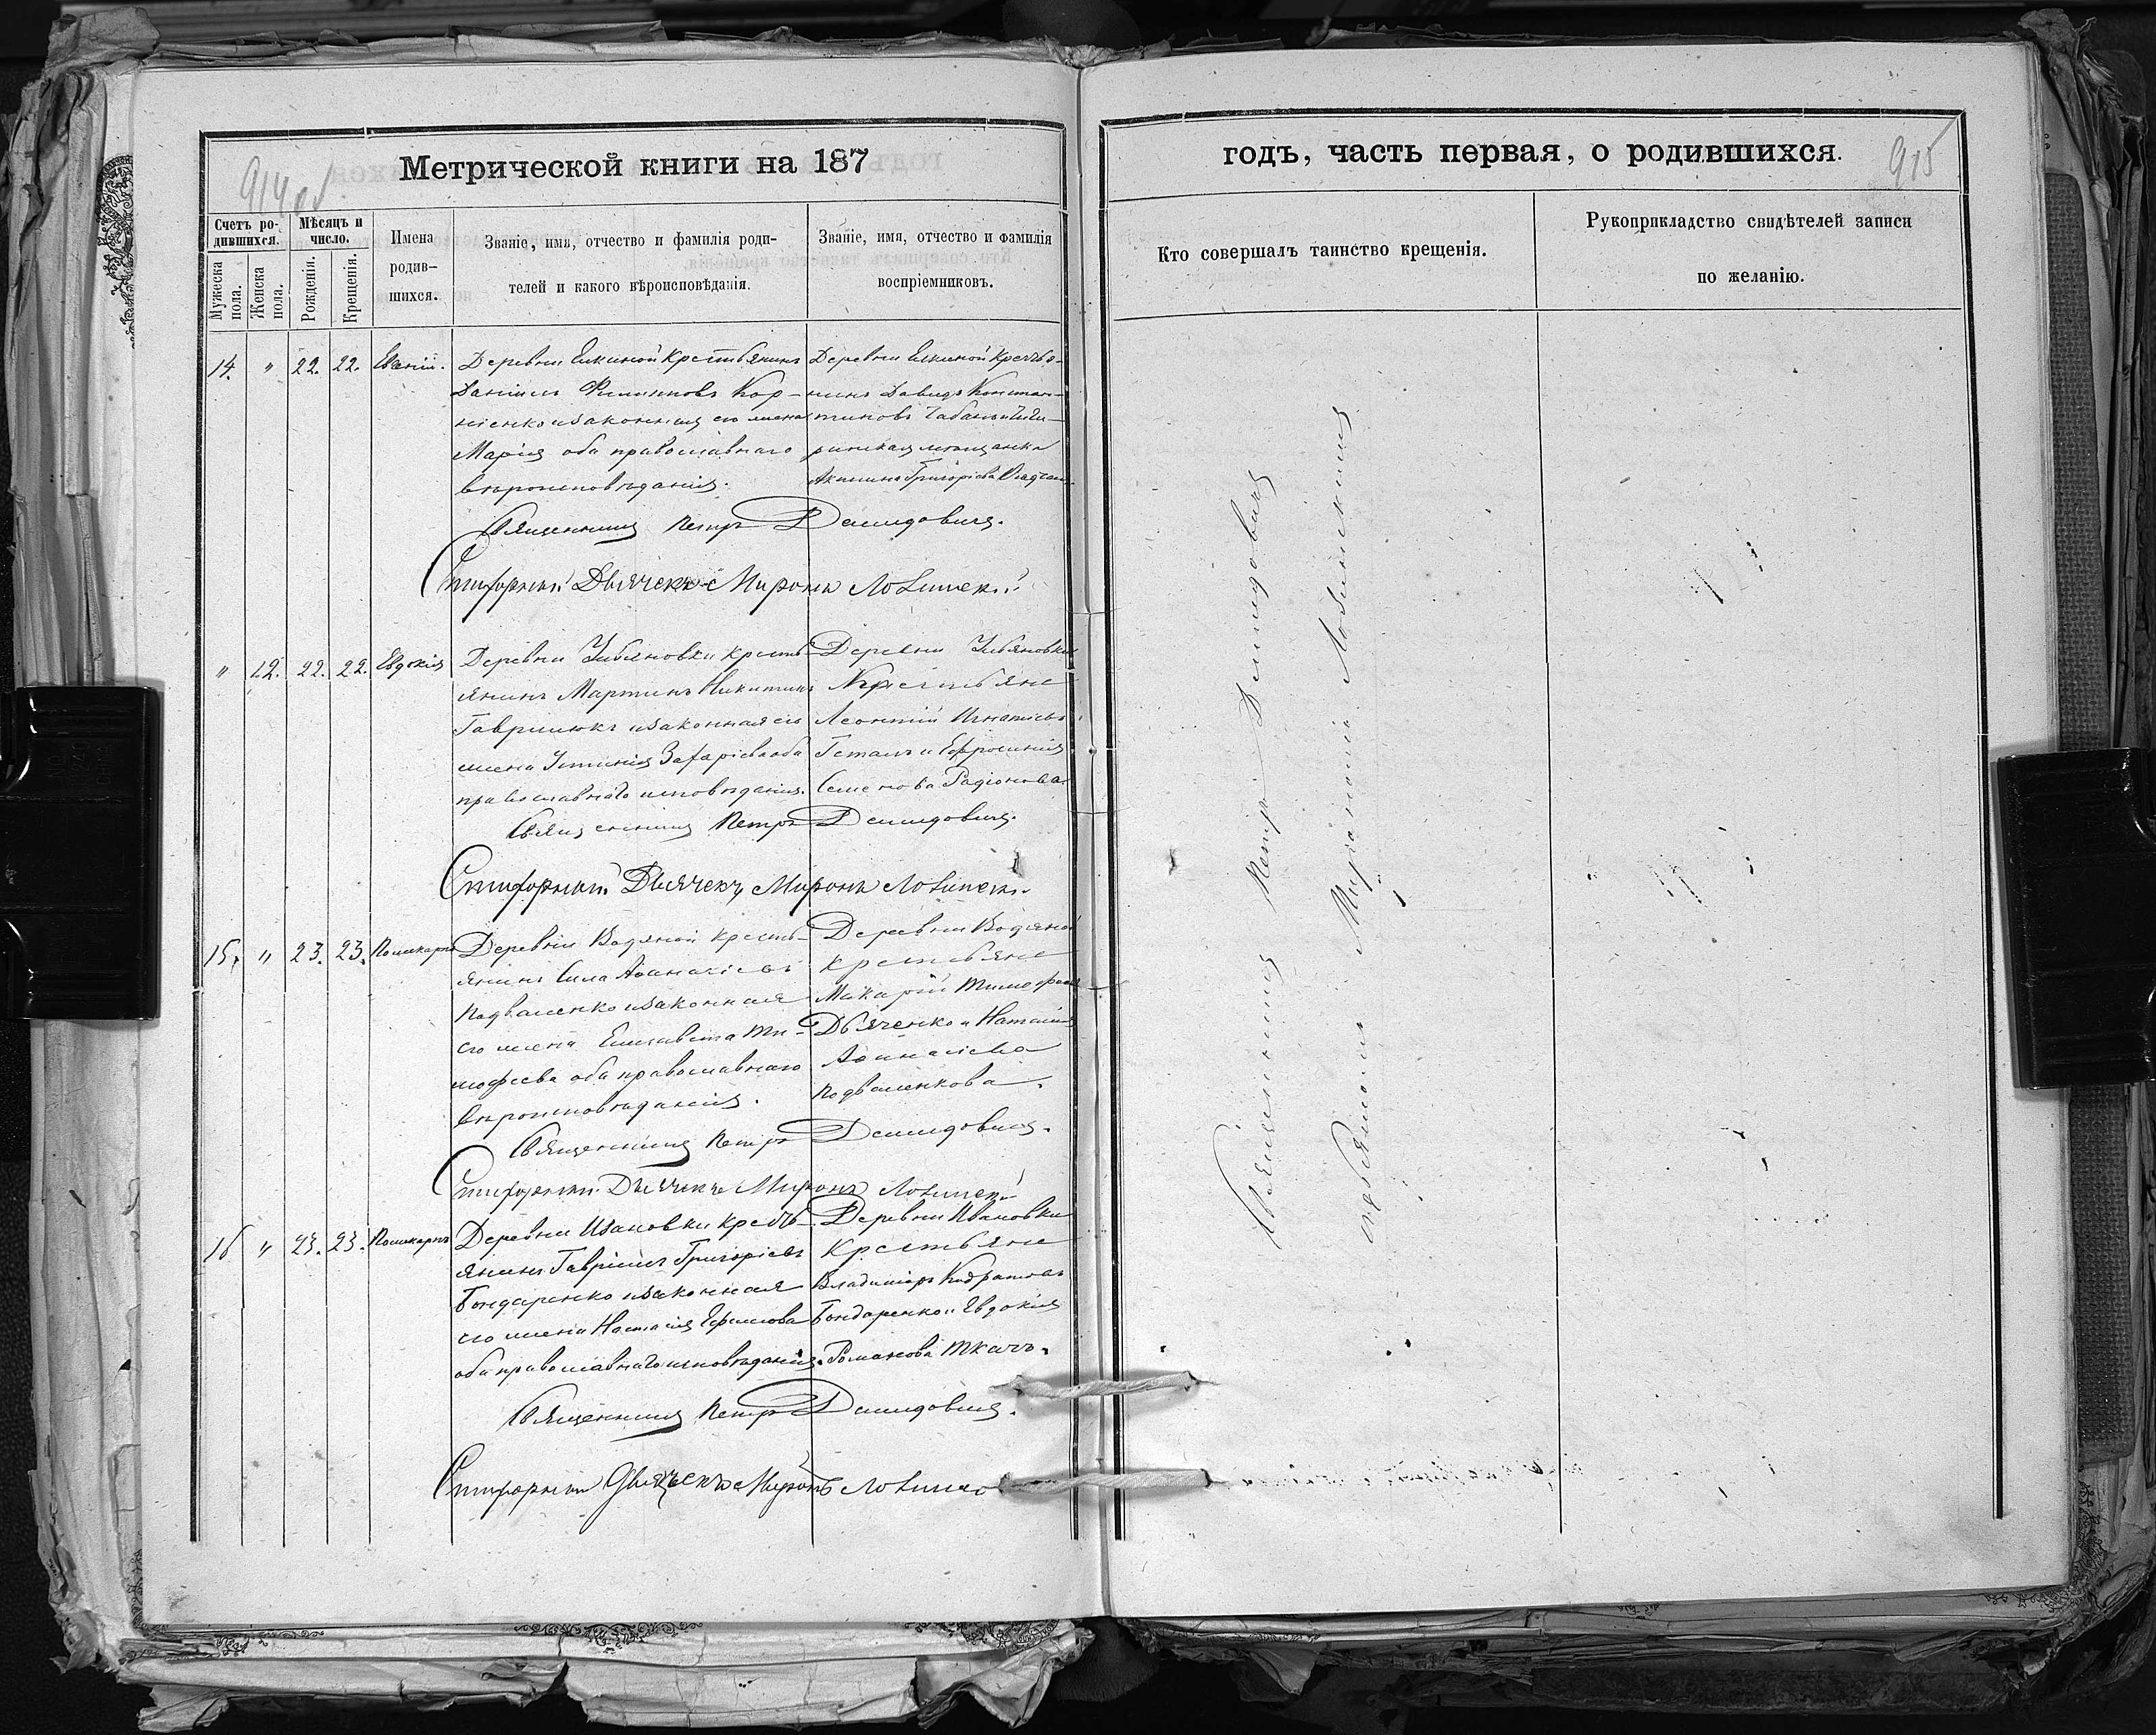 914 об
Метрической книги на 187
Счетъ ро-
дившихся.
Мѣсяцъ и
число.
Мужеска
пола.
Женска
пола.
Рожденія.
Крещенія.
Имена
родив-
шихся.
Званіе, имя, отчество и фамилія роди-
телей и какого вѣроисповѣданія.
Званіе, имя, отчество и фамилія
воспріемниковъ.
14. " 22. 22.
Деревни Елкиной Крестьянинъ
Даніилъ Филиповъ Кор-
ніенко и законная его жена
Марія оба православнаго
вѣроисповѣданія.
Деревни Елкиной Крестья-
нинъ Давидъ Констан-
тиновъ Чабанъ и Чиги-
ринская мѣщанка
Акилина Григоріева
Священникъ Петръ Демидовичъ.
Дьячекъ Миронъ
" 12. 22. 22. Евдокія
Деревни крестъ-
янинъ Мартинъ Никитинъ
Гаврилюкъ и законная его
жена Устинія Захаріева оба
православнаго исповѣданія.
Деревни
Крестьяне
Леонтій Игнатіевъ
и Ефросинія
Семенова Радіонова
Священникъ Петръ Демидовичъ.
Дьячекъ Миронъ
15. " 23. 23. Поликарпъ
Деревни Водяной кресть-
янинъ Сила Аѳанасіевъ
Подваленко и законная
его жена Елисавета Ти-
мофеева оба православнаго
вѣроисповѣданія.
Деревни Водяной
крестьяне
Макарій Тимофеевъ
Дьяченко и Наталія
Аѳанасіева
Подваленкова.
Священникъ Петръ Демидовичъ.
Дьячекъ Миронъ
16 " 23. 23. Поликарпъ
Деревни Ивановки кресть-
янинъ Гавріилъ Григоріевъ
Бондаренко и законная
его жена Настасія Ефимова
оба православнаго исповѣданія.
Деревни Ивановки
Крестьяне
Владиміръ Кодратовъ
Бондаренко и Евдокія
Романова Ткачъ.
Священникъ Петръ Демидовичъ.
Дьячекъ Миронъ
годъ, часть первая, о родившихся.
915
Кто совершалъ таинство крещенія.
Рукоприкладство свидѣтелей записи
по желанію.
Священникъ Петръ Демидовичъ